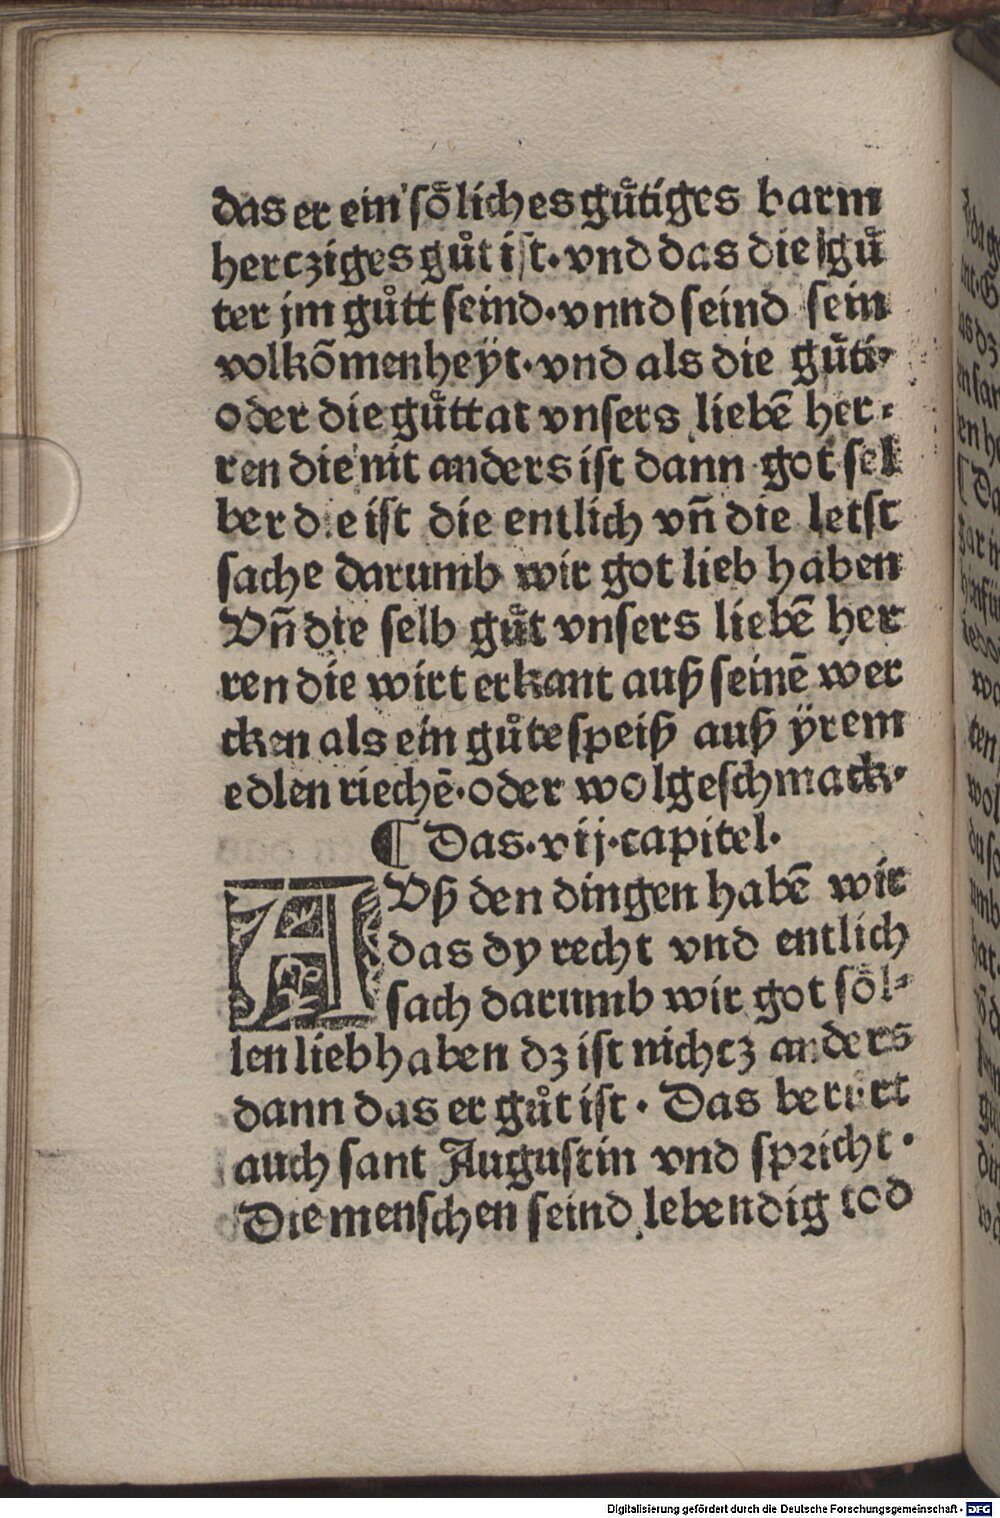 das er ein soͤliches guͤtiges barm
hercziges guͦt ist. vnd das die guͤ
ter jm guͤtt seind. vnnd seind sein
volkōmenheÿt. vnd als die guͤti-
oder die guͤttat vnsers liebē her-
ren die nit anders ist dann got sel
ber die ist die entlich vñ die letst
sache darumb wir got lieb haben
Vñ die selb guͤt vnsers liebē her
ren die wirt erkant auß seinē wer
cken als ein guͦte speiß auß ÿrem
edlen riechē. oder wolgeschmack.
¶ Das. vij. capitel.
AVß den dingen habē wir
das dy recht vnd entlich
sach darumb wir got soͤl-
len lieb haben dz ist nichcz anders
dann das er guͦt ist. Das berürt
auch sant Augustin vnd spricht.
Die menschen seind lebendig tod
Digitalisierung gefördert durch die Deutsche Forschungsgemeinschaft - DFG